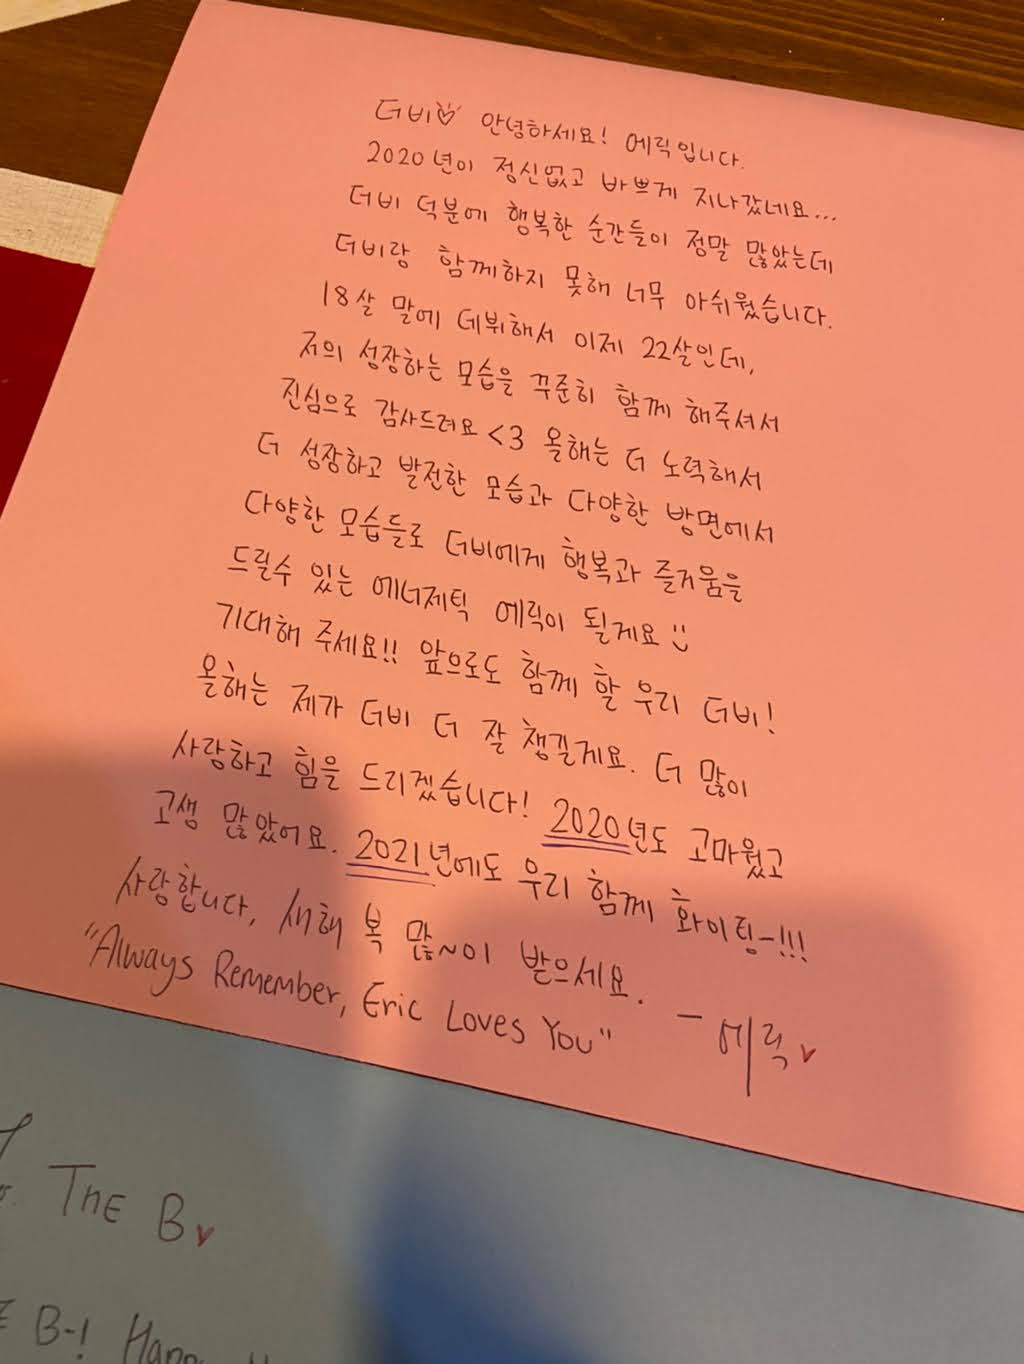 더비♡ 안녕하세요! 에릭입니다.
2020년이 정신없고 바쁘게 지나갔네요...
더비 덕분에 행복한 순간들이 정말 많았는데
더비랑 함께하지 못해 너무 아쉬웠습니다.
18살 말에 데뷔해서 이제 22살인데,
저의 성장하는 모습을 꾸준히 함께 해주셔서
진심으로 감사드려요 <3 올해는 더 노력해서
더 성장하고 발전한 모습과 다양한 방면에서
다양한 모습들로 더비에게 행복과 즐거움을
드릴수 있는 에너제틱 에릭이 될게요 :)
기대해 주세요!! 앞으로도 함께 할 우리 더비!
올해는 제가 더비 더 잘 챙길게요. 더 많이
사랑하고 힘을 드리겠습니다! 2020년도 고마웠고
고생 많았어요. 2021년에도 우리 함께 화이팅-!!!
사랑합니다, 새해 복 많~이 받으세요.
"Always Remember, Eric Loves You" - 에릭♥
THE B♥
B-!